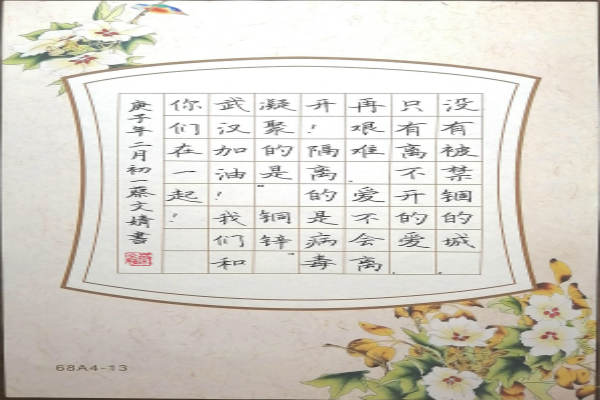 没有被禁锢的城，
只有离不开的爱。
再艰难，爱不会离
开！隔离的是病毒，
凝聚的是“铜锌”
武汉加油！我们和
你们在一起！
庚子年二月初一蔡文婧书
68A4-13